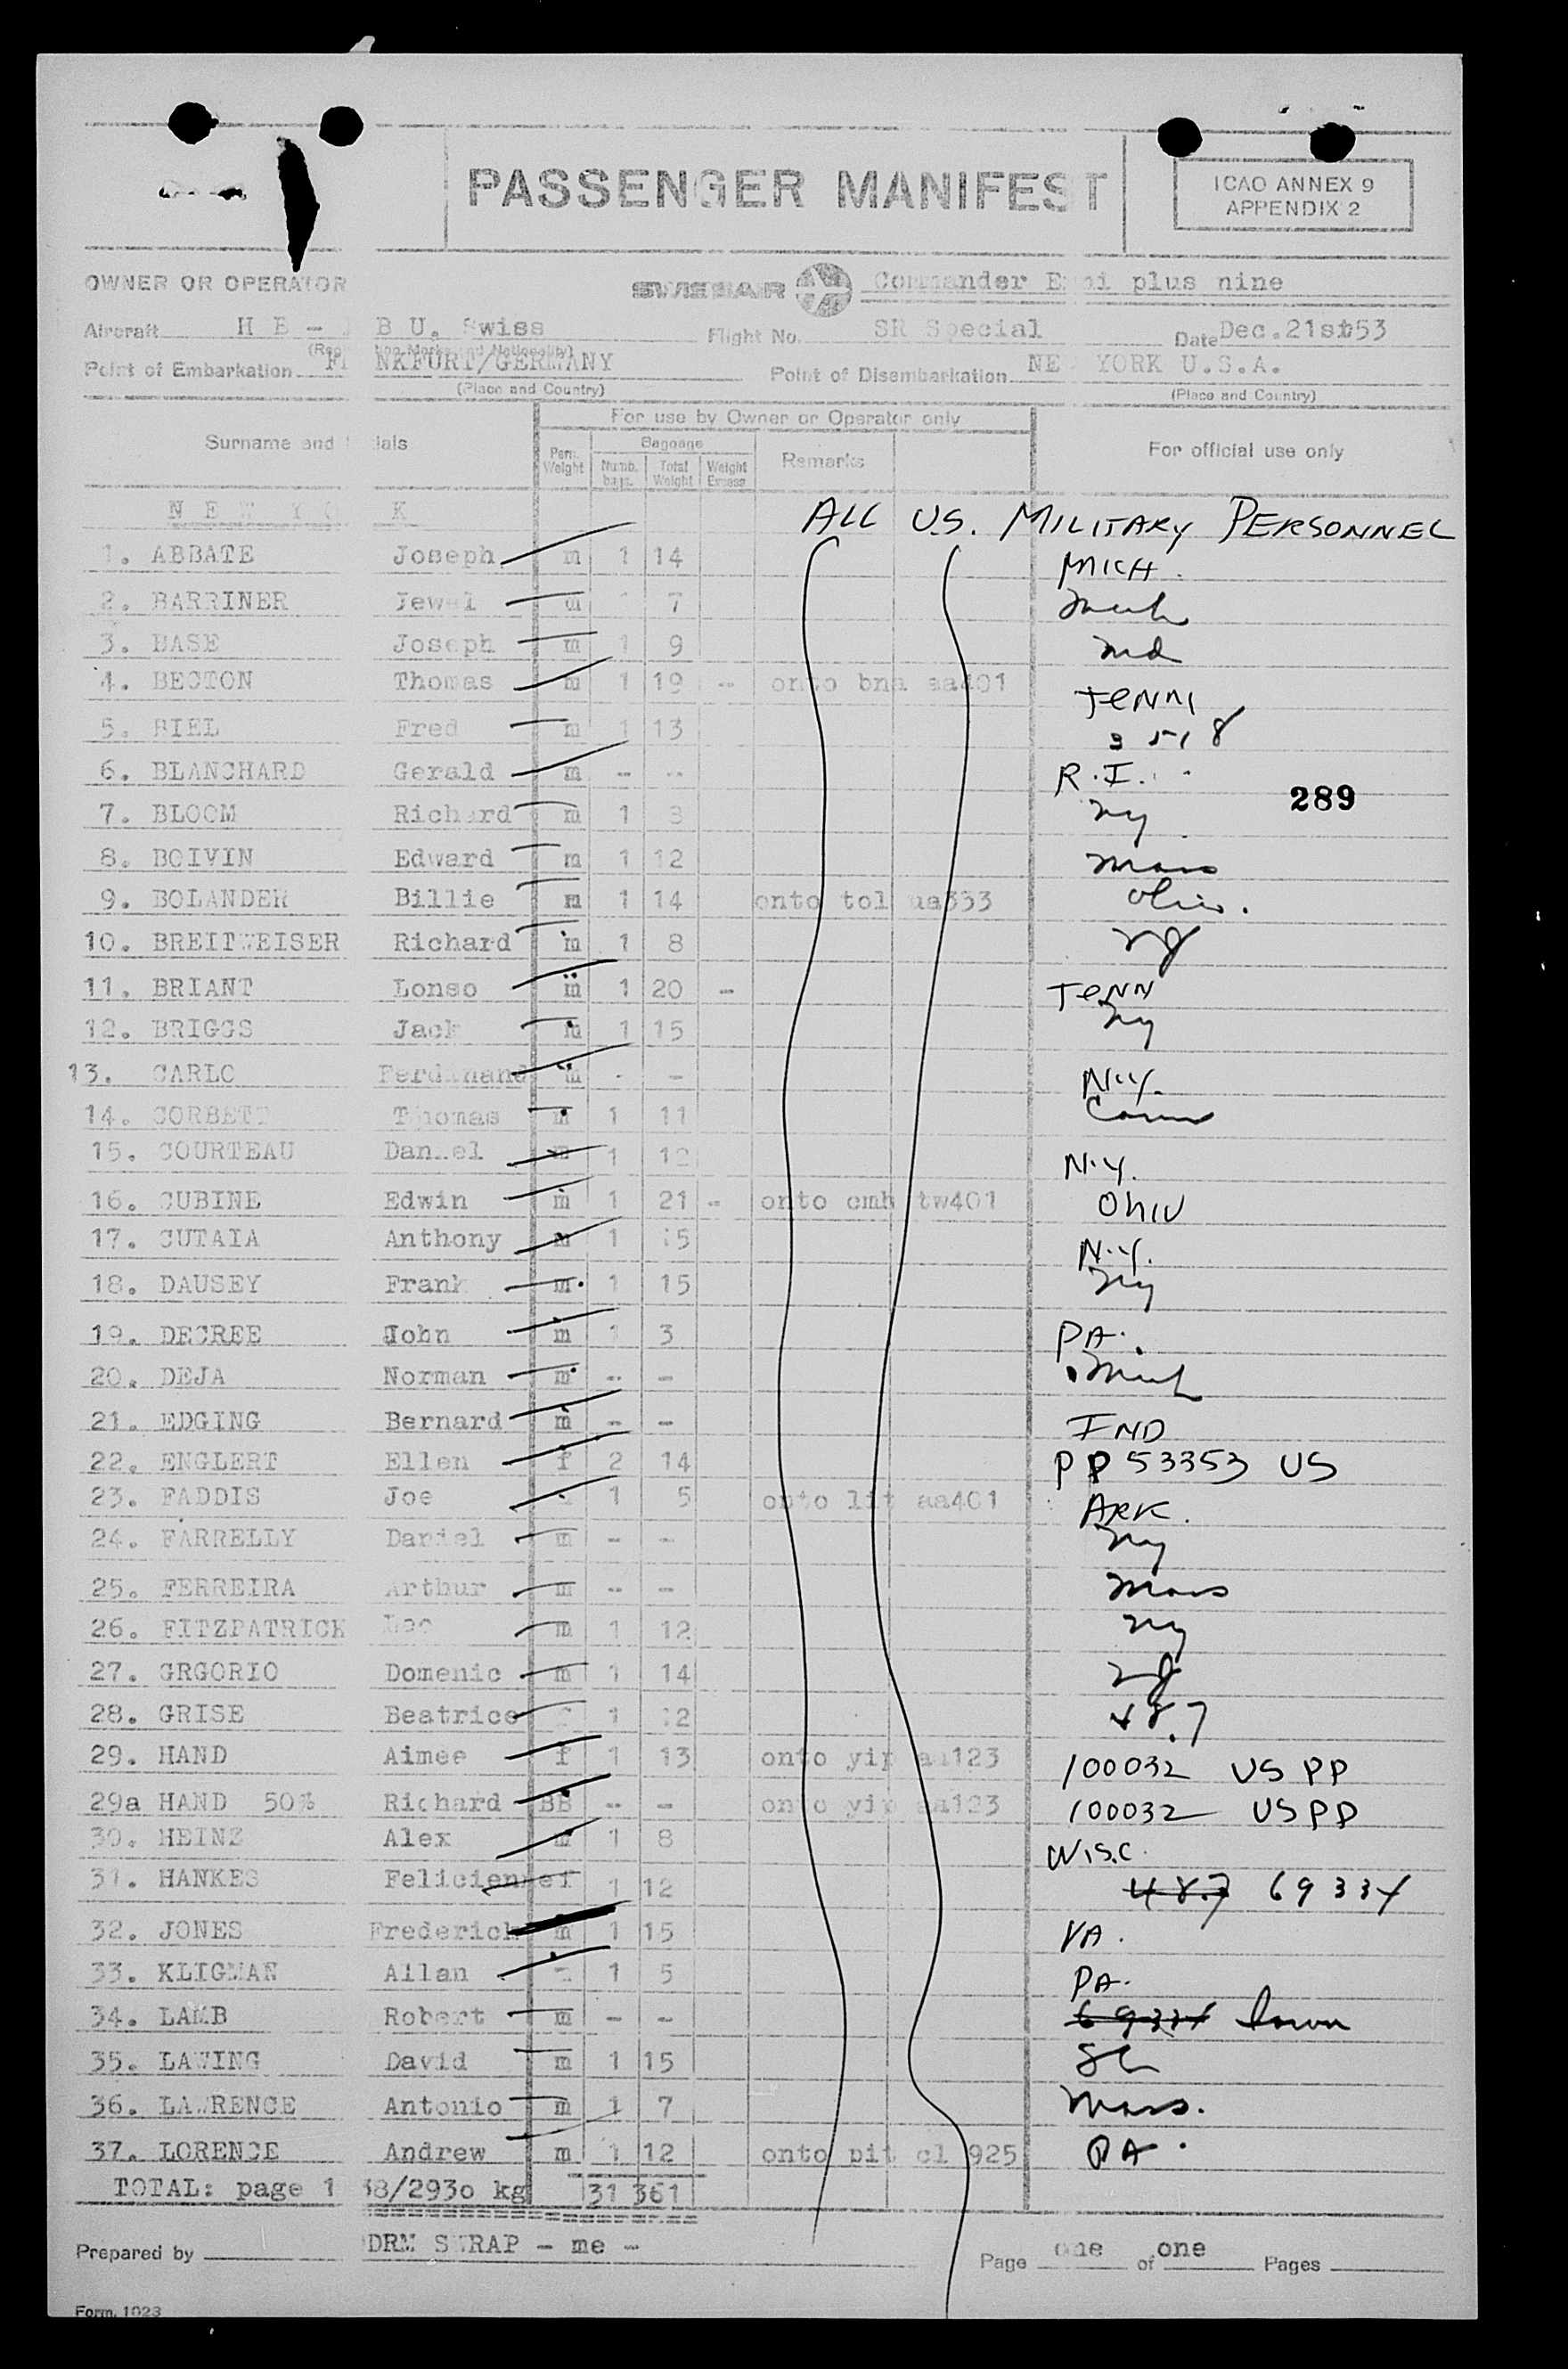 PASSENGER MANIFEST
ICAO ANNEX 9
APPENDIX 2
OWNER OR OPERATOR SWISSAIR Commander plus nine
Aircraft H B - B U. Swiss Flight No. SR Special Date Dec.21st53
Point of Embarkation NKFURT/GERMANY Point of Disembarkation NE YORK U.S.A.
(Place and Country) (Place and Country)
For use by Owner or Operator only
Surname and ials Pers. Weight Baggage Numb. bags. Total Weight Weight Excess Remarks For official use only
N E W Y O K ALL U.S. MILITARY PERSONNEL
1. ABBATE Joseph m 1 14 MICH.
2. BARRINER Jewel m 7 Mich
3. BASE Joseph m 1 9 Md
4. BECTON Thomas m 1 19 -- onto bna aa401 TENN
5. BIEL Fred m 1 13 3 5 1 8
6. BLANCHARD Gerald m -- -- R.I.
289
7. BLOOM Richard m 1 8 NY
8. BOIVIN Edward m 1 12 Mass
9. BOLANDER Billie m 1 14 onto tol ua353 Ohio.
10. BREITWEISER Richard m 1 8 NJ
11. BRIANT Lonso m 1 20 - TENN
12. BRIGGS Jack m 1 15 NY
13. CARLO Ferdinand m - - N.Y.
14. CORBETT Thomas m 1 11 Conn
15. COURTEAU Daniel m 1 12 N.Y.
16. CUBINE Edwin m 1 21 - onto cmh tw401 OHIO
17. CUTAIA Anthony m 1 15 N.Y.
18. DAUSEY Frank m 1 15 NY
19. DECREE John m 1 3 PA.
20. DEJA Norman m -- - Mich
21. EDGING Bernard m -- -- IND
22. ENGLERT Ellen f 2 14 PP 53353 US
23. FADDIS Joe 1 5 onto lit aa401 ARK.
24. FARRELLY Daniel m -- -- NY
25. FERREIRA Arthur m -- -- Mass
26. FITZPATRICK Leo m 1 12 NY
27. GRGORIO Domenic m 1 14 NJ
28. GRISE Beatrice f 1 12 48.7
29. HAND Aimee f 1 13 onto yip aa123 100032 US PP
29a HAND 50% Richard BB -- -- onto yip aa123 100032 US PP
30. HEINZ Alex m 1 8 WISC.
31. HANKES Felicien 1 12 48.7 69334
32. JONES Frederick m 1 15 VA.
33. KLIGMAN Allan 1 5 PA.
34. LAMB Robert m -- -- 69334 Iowa
35. LAWING David m 1 15 SC
36. LAWRENCE Antonio m 1 7 Mass.
37. LORENCE Andrew m 1 12 onto pit cl 925 PA.
TOTAL: page 1 38/293o kg 31 361
Prepared by DRM SWRAP - me - Page one of one Pages
Form. 1023